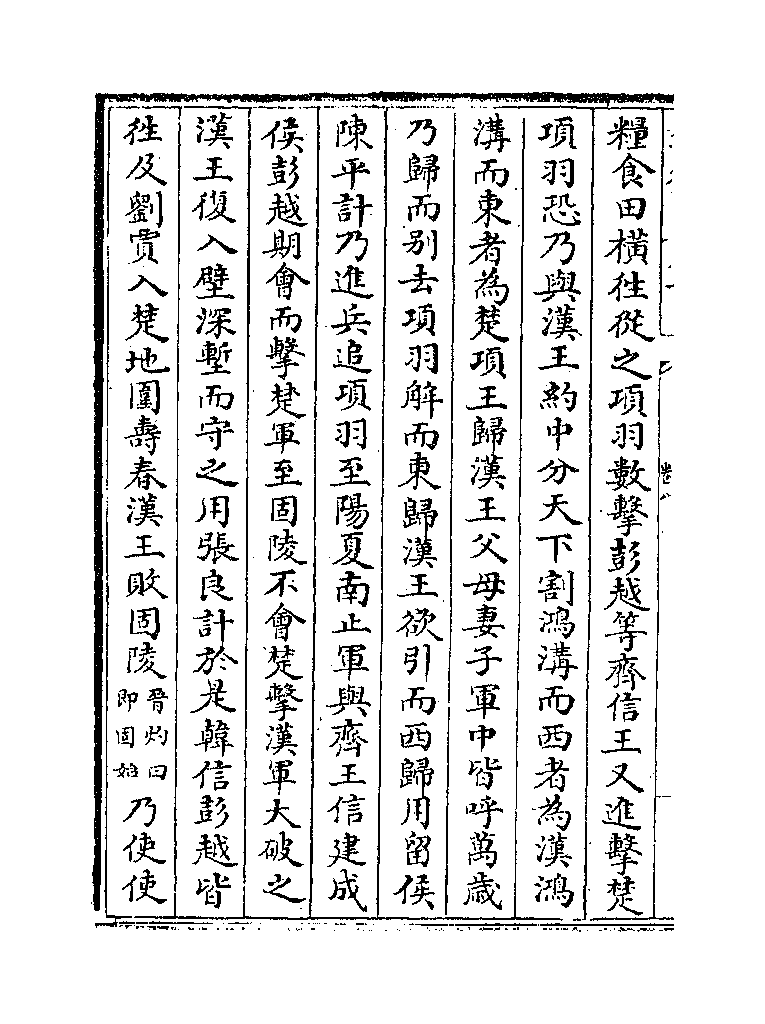 糧食田橫徃從之項羽數擊彭越等齊信王又進擊楚
項羽恐乃與漢王約中分天下割鴻溝而西者為漢鴻
溝而東者為楚項王歸漢王父母妻子軍中皆呼萬歲
乃歸而别去項羽解而東歸漢王欲引而西歸用留侯
陳平計乃進兵追項羽至陽夏南止軍與齊王信建成
侯彭越期會而擊楚軍至固陵不會楚擊漢軍大破之
漢王復入壁深塹而守之用張良計於是韓信彭越皆
徃及劉賈入楚地圍壽春漢王敗固陵晉灼曰即固始乃使使
卷八